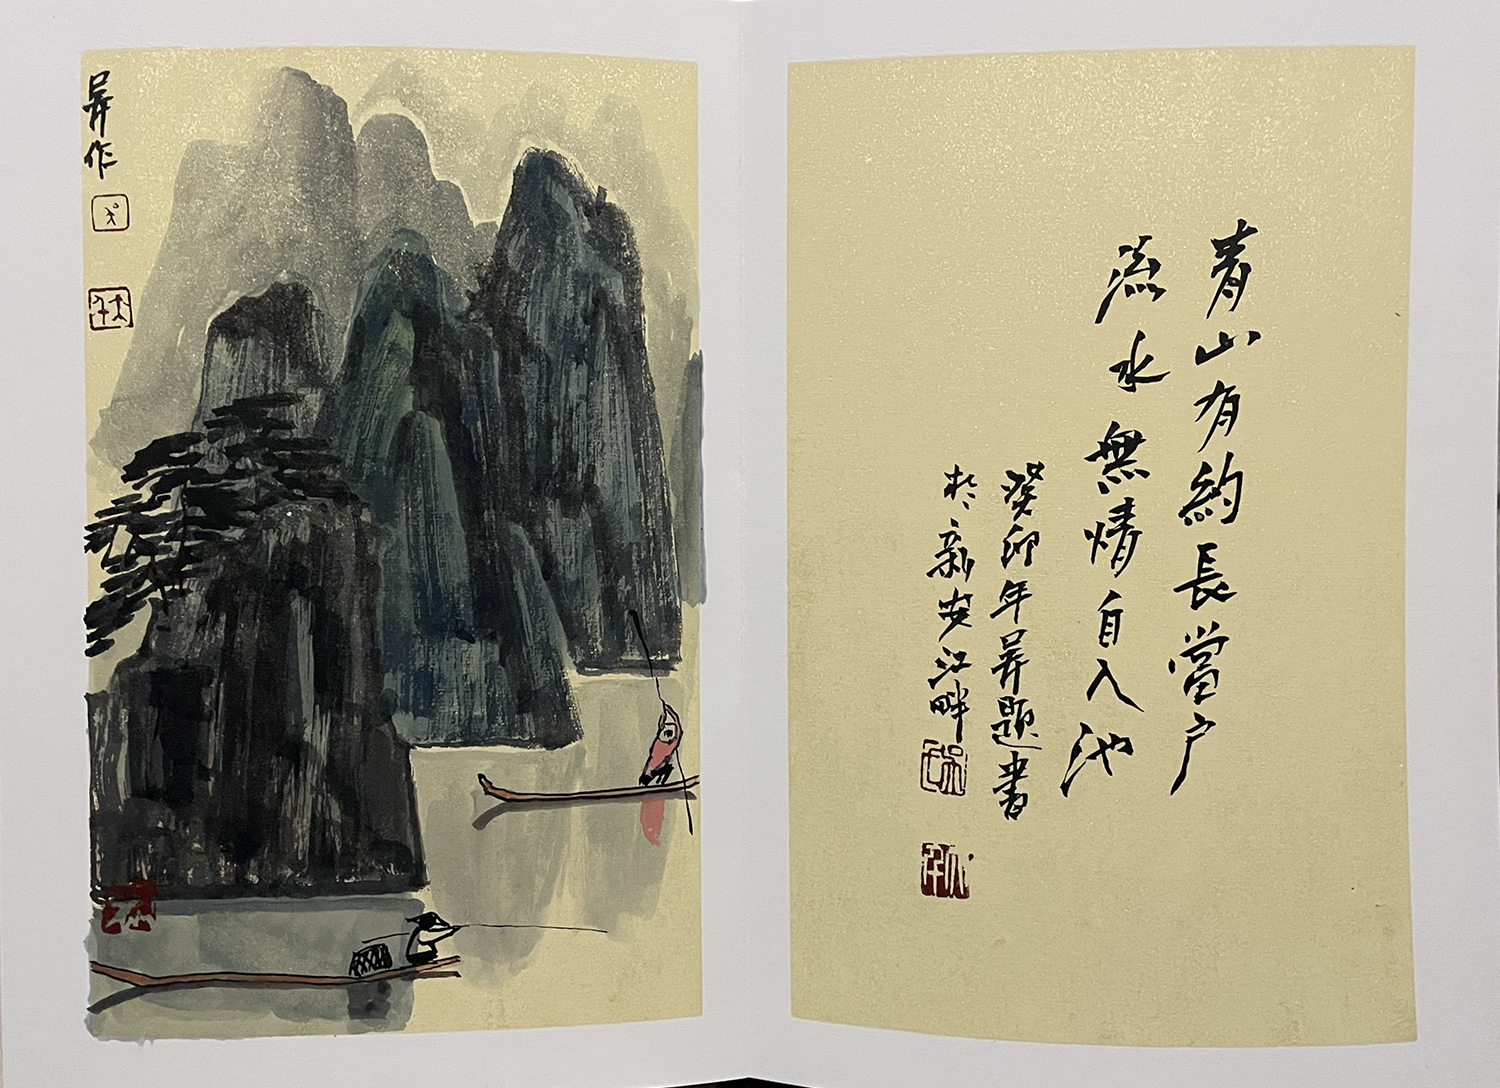 青山有約長當户
流水無情自入池
癸卯年昇題書
於新安江畔
昇作